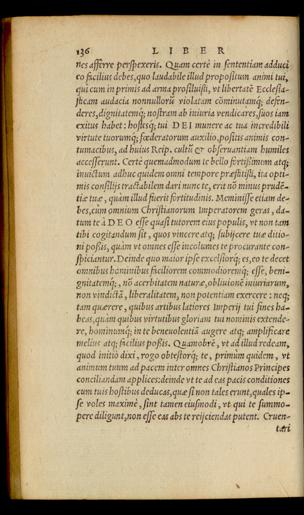 136 LIBER
nes afferre perspexeris. Quam certè in sententiam adduci
eo facilius debes, quo laudabile illud propositum animi tui,
qui cum in primis ad arma prosiluisti, vt libertatē Ecclesia-
sticam audacia nonnullorū violatam cōminutamq; defen-
deres, dignitatemq; nostram ab iniuria vendicares, suos iam
exitus habet: hostesq; tui DEI munere ac tua incredibili
virtute tuorumq; fœderatorum auxilio, positis animis con-
tumacibus, ad huius Reip. cultū & obseruantiam humiles
accesserunt. Certè quemadmodum te bello fortissimum atq;
inuictum adhuc quidem omni tempore præstitisti, ita opti-
mis consilijs tractabilem dari nunc te, erit nō minus prudē-
tiæ tuæ, quàm illud fuerit fortitudinis. Meminisse etiam de-
bes, cùm omnium Christianorum Imperatorem geras, da-
tum te à DEO esse quasi tutorem eius populis, vt non tam
tibi cogitandum sit, quos vincere atq; subijcere tuæ ditio-
ni possis, quàm vt omnes esse incolumes te procurante con-
spiciantur. Deinde quo maior ipse excelsiorq; es, eo te decet
omnibus hominibus faciliorem commodioremq; esse, beni-
gnitatemq;, nō acerbitatem naturæ, obliuionē iniuriarum,
non vindictā, liberalitatem, non potentiam exercere: neq;
tam quærere, quibus artibus latiores Imperij tui fines ha-
beas, quàm quibus virtutibus gloriam tui nominis extende-
re, hominumq; in te beneuolentiā augere atq; amplificare
melius atq; facilius possis. Quamobrē, vt ad illud redeam,
quod initio dixi, rogo obtestorq; te, primùm quidem, vt
animum tuum ad pacem inter omnes Christianos Principes
conciliandam applices: deinde vt te ad eas pacis conditiones
cum tuis hostibus deducas, quæ si non tales erunt, quales ip-
se voles maximè, sint tamen eiusmodi, vt qui te summo-
pere diligunt, non esse eas abs te reijciendas putent. Cruen-
tari